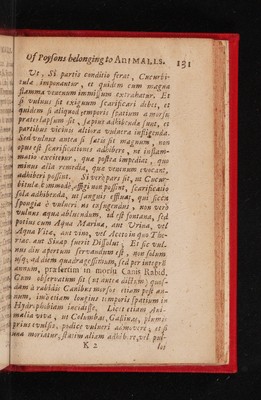 Of Poysons belonging to ANIMALLS. 131
Ut, Si partis conditio ferat, Cucurbi-
tulæ imponantur, et quidem cum magna
flamma venenum immissum extrahatur. Et
si vulnus sit exiguum scarificari debet, et
quidem si aliquod temporis spatium a morsu
præterlapsum sit, sæpius adhibenda sunt, et
partibus vicinis altiora vulnera infligenda.
Sed vulnus antea si satis sit magnum, non
opus est scarificationes adhibere, ne inflam-
matio excitetur, quæ postea impediet, quo
minus alia remedia, quæ venenum evocant,
adhiberi possint. Si verò pars sit, ut Cucur-
bitulæ commodè affigi non possint, scarificatio
sola adhibenda, ut sanguis effluat, qui sicca
spongia è vulnere est exsugendus, non verò
vulnus aqua abluendum, id est fontana, sed
potius cum Aqua Marina, aut Urina, vel
Aqua Vitæ, aut vino, vel Aceto in quo The-
riac. aut Sinap. fuerit Dissolut; Et sic vul-
nus diu apertum servandum est, non solum
usq; ad diem quadragessimum, sed per integrũ
annum, præsertim in morsu Canis Rabid.
Cum observatum sit (ut antea diximus) quos-
dam à rabidis Canibus morsos etiam post an-
num, imò etiam longius temporis spatium in
Hydrophobiam incidisse. Licet etiam Ani-
malia viva, ut Columbas, Gallinas, plumis
prius evulsis, podice vulneri admovere, et si
una moriatur, statim aliam adhibere, vel pul-
K 2 los